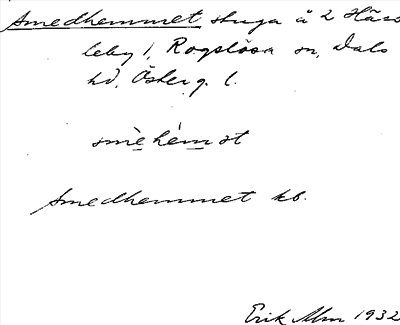 Smedhemmet stuga å 2 Häss
leby 1, Rogslösa sn, Dals
hd, Österg. l.
smèhém ət
Smedhemmet kb.
Erik Alm 1932